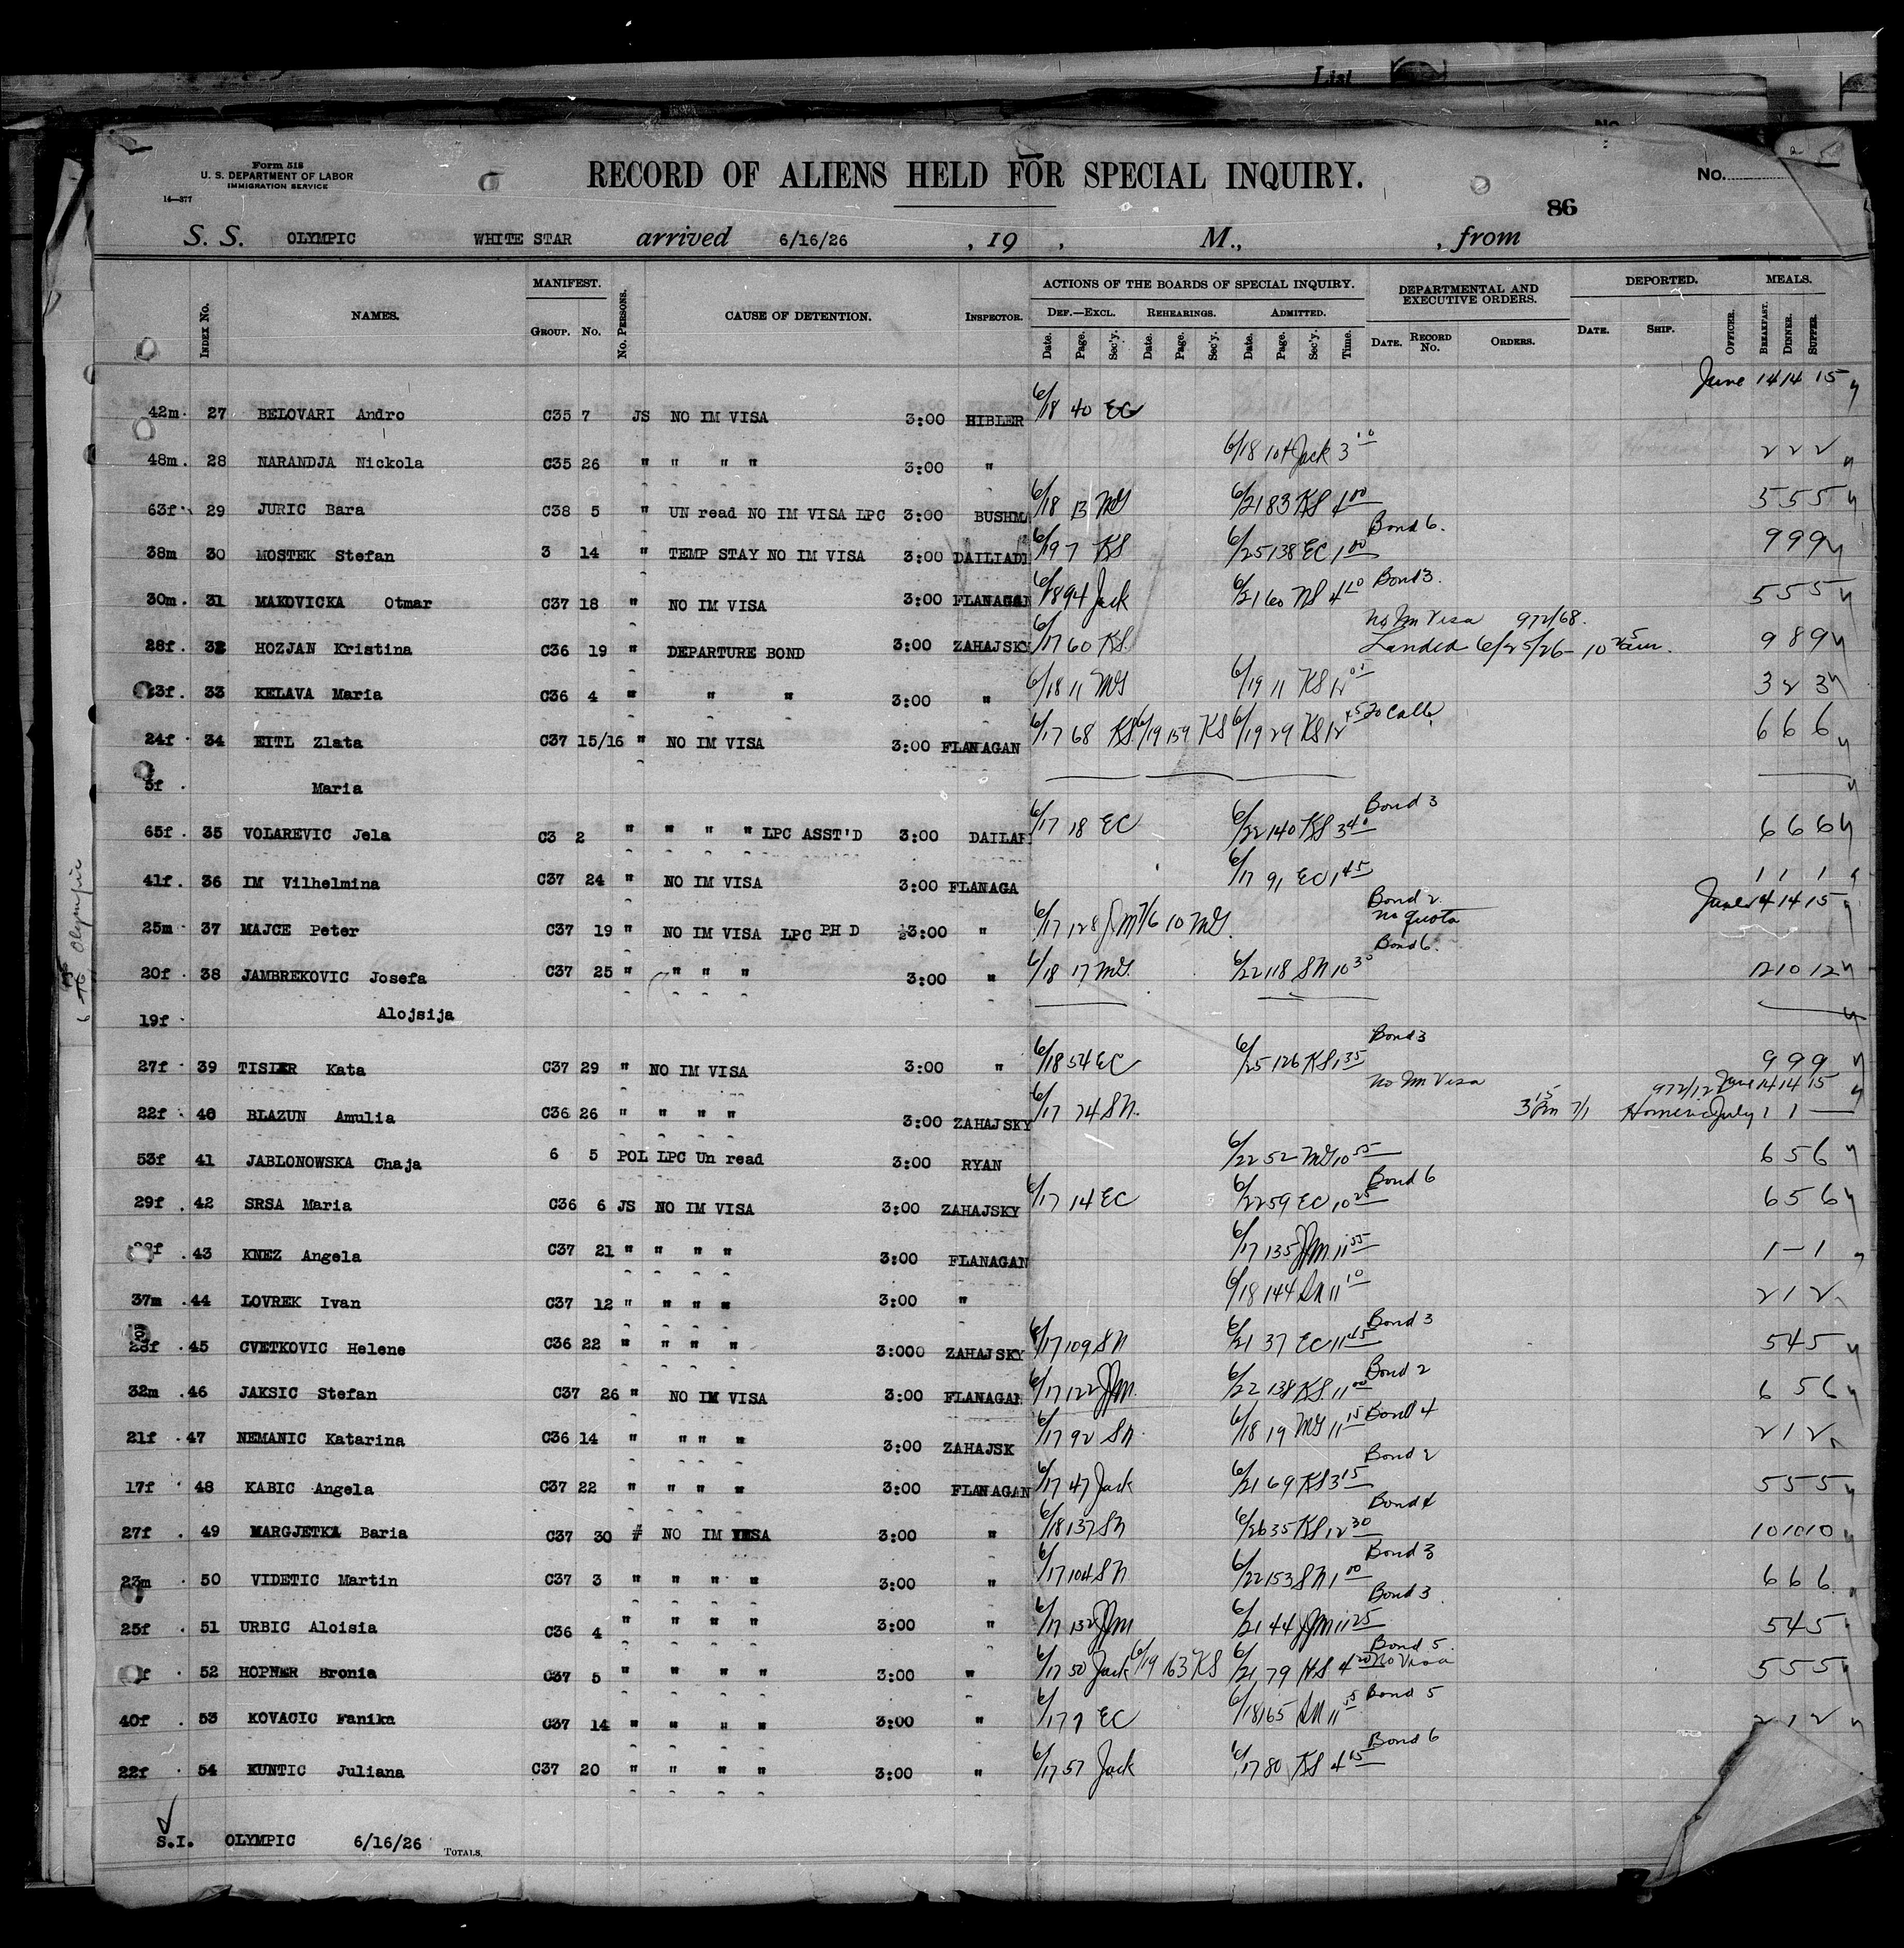 List
No.
Form 518
U. S. DEPARTMENT OF LABOR
IMMIGRATION SERVICE
14—377
RECORD OF ALIENS HELD FOR SPECIAL INQUIRY.
No.
86
S. S. OLYMPIC WHITE STAR arrived 6/16/26 , 19 , M., , from
INDEX No. NAMES. MANIFEST. GROUP. No. No. PERSONS. CAUSE OF DETENTION. INSPECTOR. ACTIONS OF THE BOARDS OF SPECIAL INQUIRY. DEPARTMENTAL AND EXECUTIVE ORDERS. DEPORTED. MEALS.
DEF.—EXCL. REHEARINGS. ADMITTED.
Date. Page. Sec'y. Date. Page. Sec'y. Date. Page. Sec'y. Time. DATE. RECORD No. ORDERS. DATE. SHIP. OFFICER. BREAKFAST. DINNER. SUPPER.
42m. 27 BELOVARI Andro C35 7 JS NO IM VISA 3:00 HIBLER 6/18 40 EC June 14 14 15
48m. 28 NARANDJA Nickola C35 26 " " " " 3:00 " 6/18 104 Jack 3 10 2 2 2
63f. 29 JURIC Bara C38 5 " UN read NO IM VISA LPC 3:00 BUSHMA 6/18 13 MG 6/21 83 KS 4 00 5 5 5
38m 30 MOSTEK Stefan 3 14 " TEMP STAY NO IM VISA 3:00 DAILIADI 6/19 7 KS 6/25 138 EC 1 00 Bond 6. 9 9 9
30m. 31 MAKOVICKA Otmar C37 18 " NO IM VISA 3:00 FLANAGAN 6/18 94 Jack 6/21 60 NS 4 10 Bond 3. 5 5 5
28f. 32 HOZJAN Kristina C36 19 " DEPARTURE BOND 3:00 ZAHAJSKY 6/17 60 KS. No Im Visa 972/68. Landed 6/25/26 - 10 25 am. 9 8 9
3f. 33 KELAVA Maria C36 4 " " " 3:00 " 6/18 11 MG 6/19 11 KS 12 01 3 2 3
24f. 34 EITL Zlata C37 15/16 " NO IM VISA 3:00 FLANAGAN 6/17 68 KS 6/19 159 KS 6/19 29 KS 12 45 6 6 6
5f. Maria
65f. 35 VOLAREVIC Jela C3 2 " " " " LPC ASST'D 3:00 DAILAR 6/17 18 EC 6/22 140 KS 3 40 Bond 3 6 6 6
41f. 36 IM Vilhelmina C37 24 " NO IM VISA 3:00 FLANAGA 6/17 91 EC 1 45 1 1 1
25m. 37 MAJCE Peter C37 19 " NO IM VISA LPC PH D ½3:00 " 6/17 128 JM 7/6 10 MG. Bond 2 no quota June 14 14 15
20f. 38 JAMBREKOVIC Josefa C37 25 " " " " 3:00 " 6/18 17 MG. 6/22 118 SN 10 30 Bond 6. 12 10 12
19f. Alojsija
27f. 39 TISLER Kata C37 29 " NO IM VISA 3:00 " 6/18 54 EC 6/25 126 KS 1 35 Bond 3 9 9 9
22f. 40 BLAZUN Amulia C36 26 " " " " 3:00 ZAHAJSKY 6/17 74 SN. No Im Visa 3 15 Pm 7/1 Homeric June 14 14 15 July 1 1 —
53f. 41 JABLONOWSKA Chaja 6 5 POL LPC Un read 3:00 RYAN 6/22 52 MG 10 55 6 5 6
29f. 42 SRSA Maria C36 6 JS NO IM VISA 3:00 ZAHAJSKY 6/17 14 EC 6/22 59 EC 10 25 Bond 6 6 5 6
.43 KNEZ Angela C37 21 " " " " 3:00 FLANAGAN 6/17 135 JM 11 55 1 — 1
37m .44 LOVREK Ivan C37 12 " " " " 3:00 " 6/18 144 SN 11 10 2 1 2
.45 CVETKOVIC Helene C36 22 " " " " 3:000 ZAHAJSKY 6/17 109 SN 6/21 37 EC 11 45 Bond 3 5 4 5
32m .46 JAKSIC Stefan C37 26 " NO IM VISA 3:00 FLANAGAN 6/17 122 JM. 6/22 138 KS 11 00 Bond 2 6 5 6
21f .47 NEMANIC Katarina C36 14 " " " " 3:00 ZAHAJSK 6/17 92 SN. 6/18 19 MG 11 15 Bond 4 2 1 2
17f . 48 KABIC Angela C37 22 " " " " 3:00 FLANAGAN 6/17 47 Jack 6/21 69 KS 3 15 Bond 2 5 5 5
27f . 49 MARGJETKA Baria C37 30 # NO IM VISA 3:00 " 6/18 137 SN 6/26 35 KS 12 30 Bond 4 10 10 10
23m . 50 VIDETIC Martin C37 3 " " " " 3:00 " 6/17 104 SN 6/22 153 SN 1 00 Bond 3 6 6 6
25f . 51 URBIC Aloisia C36 4 " " " " 3:00 " 6/17 132 JM 6/21 44 JM 11 25 Bond 3 5 4 5
f . 52 HOPNER Bronia C37 5 " " " " 3:00 " 6/17 50 Jack 6/19 163 KS 6/21 79 KS 4 20 Bond 5 no Visa 5 5 5
40f . 53 KOVACIC Fanika C37 14 " " " " 3:00 " 6/17 7 EC 6/18 165 SN 11 55 Bond 5 2 1 2
22f . 54 KUNTIC Juliana C37 20 " " " " 3:00 " 6/17 57 Jack 6/17 80 KS 4 15 Bond 6
S.I. OLYMPIC 6/16/26 TOTALS.
Olympic